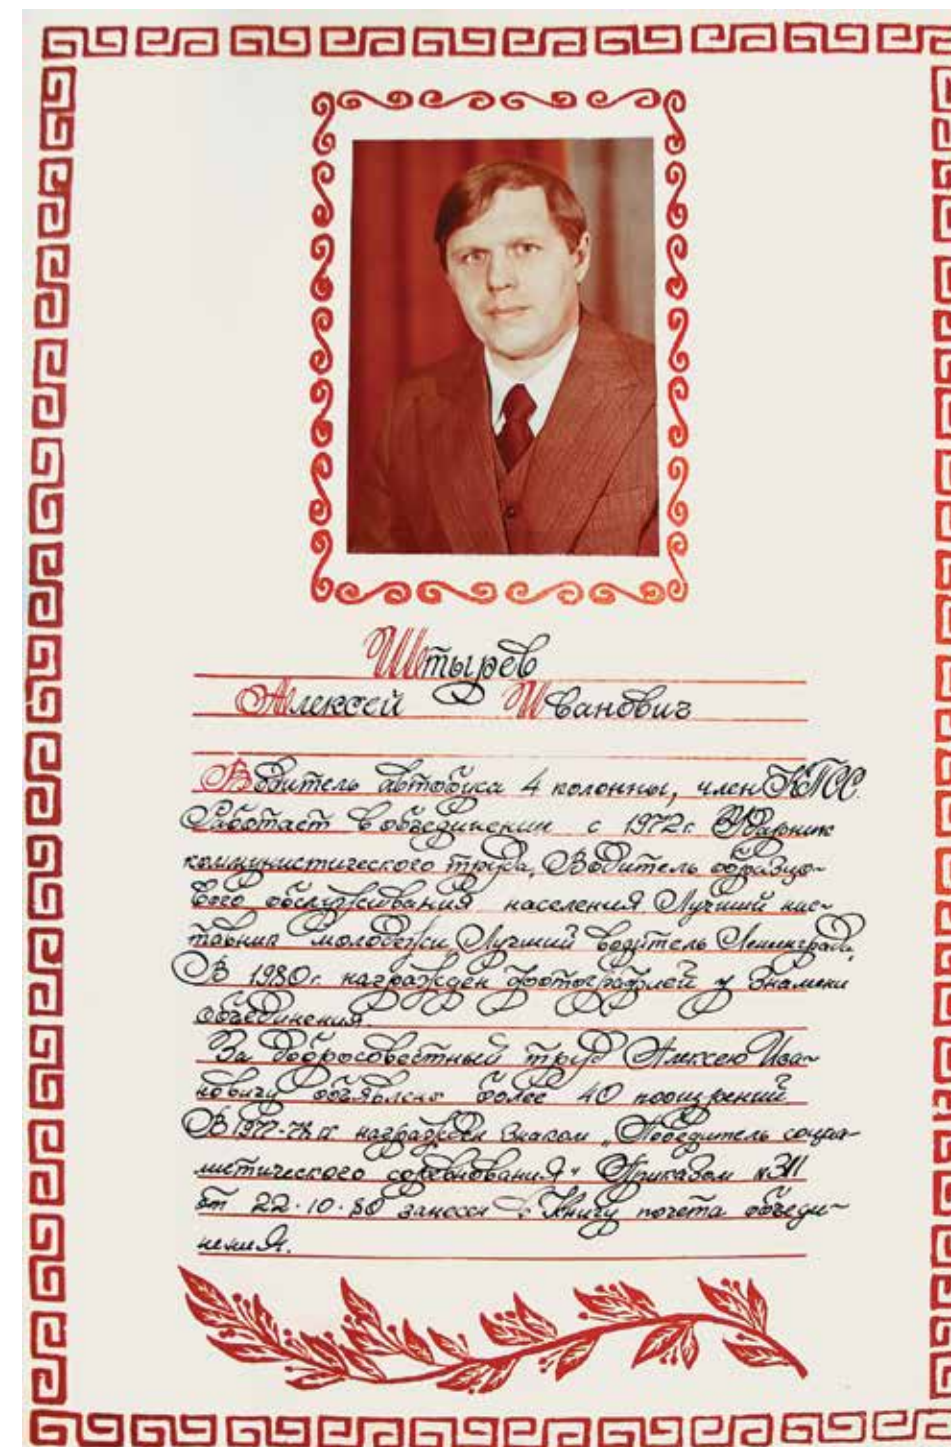 Штырев
Алексей Иванович
Водитель автобуса 4 колонны, член КПСС.
Работает в объединении с 1972г. Ударник
коммунистического труда, Водитель образцо-
вого обслуживания населения Лучший нас-
тавник молодежи, Лучший водитель Ленинграда,
В 1980г. награжден фотографией у Знамени
объединения.
За добросовестный труд Алексею Ива-
новичу объявлено более 40 поощрений.
В 1977-78 гг. награжден знаком „Победитель социа-
листического соревнования" Приказом №311
от 22.10.80 занесен в Книгу почета объеди-
нения.